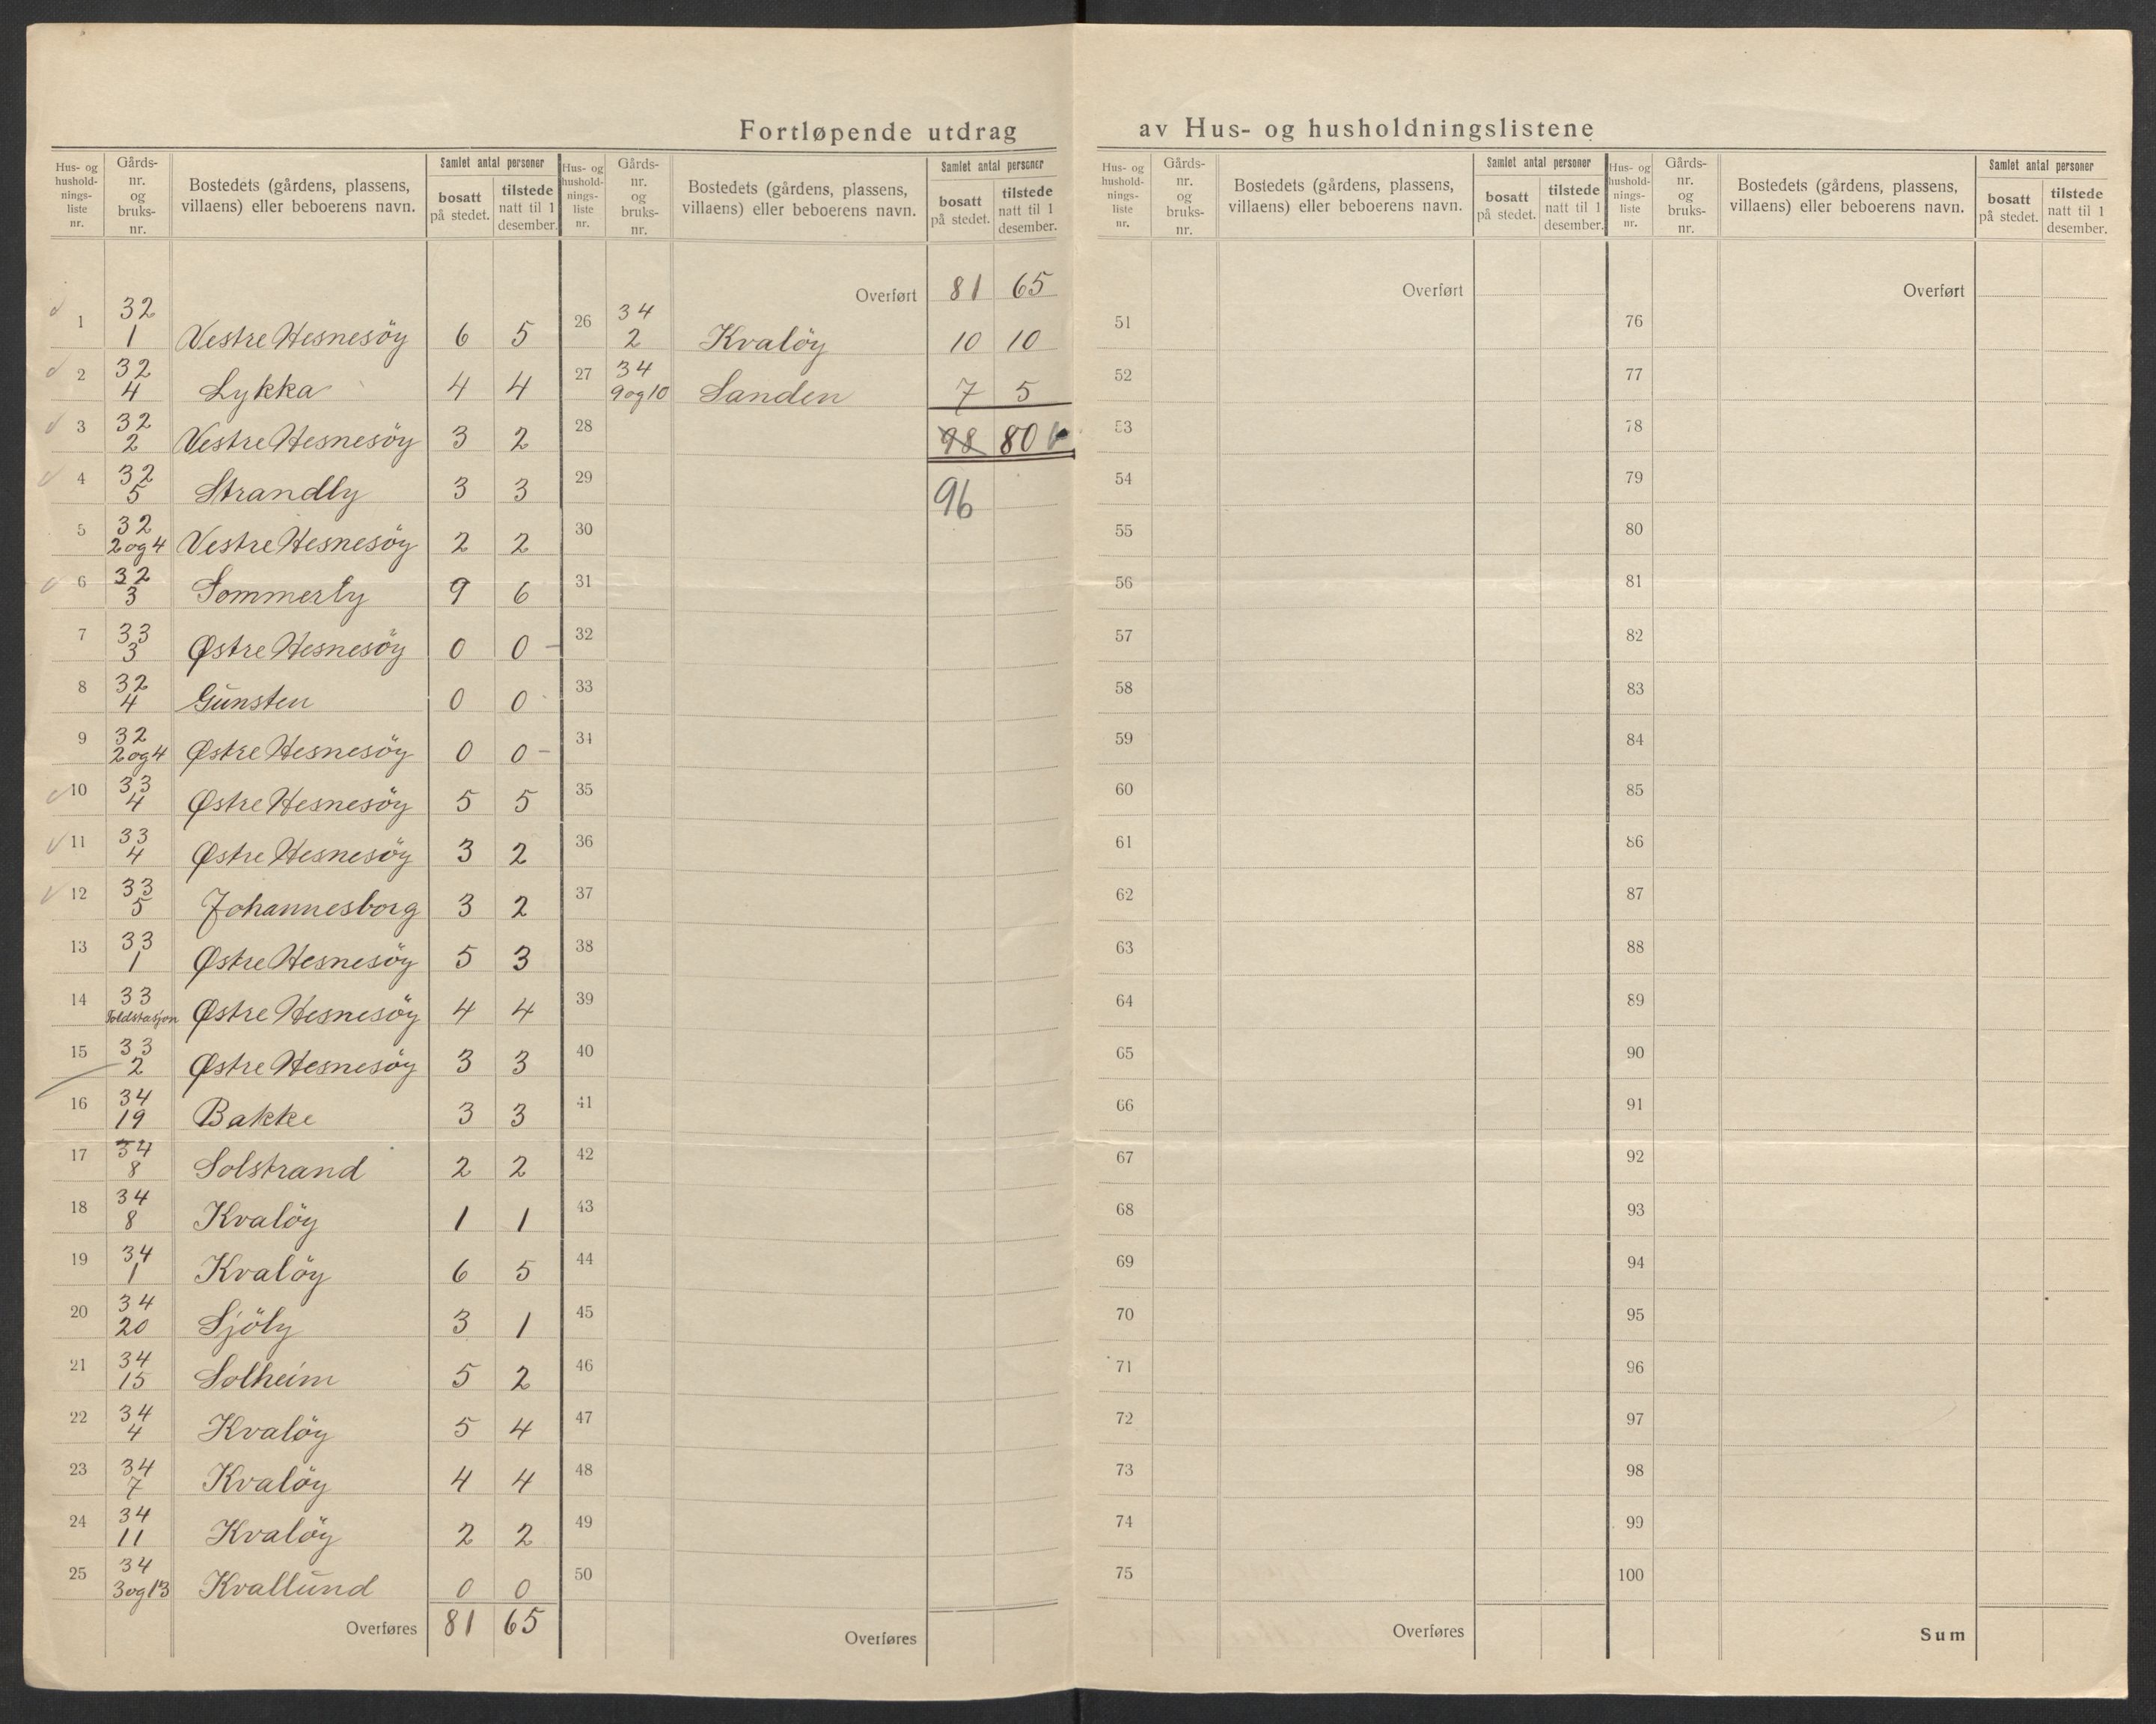 Fortløpende utdrag av Hus- og husholdningslistene
Hus- og husholdnings-liste nr. Gårds-nr. og bruks-nr. Bostedets (gårdens, plassens, villaens) eller beboerens navn. Samlet antal personer bosatt på stedet. tilstede natt til 1 desember.
1 32 1 Vestre Hesnesöy 6 5
2 32 4 Lykka 4 4
3 32 2 Vestre Hesnesöy 3 2
4 32 5 Strandly 3 3
5 32 2og4 Vestre Hesnesöy 2 2
6 32 3 Sommerly 9 6
7 33 3 Østre Hesnesöy 0 0 -
8 32 4 Gunsten 0 0
9 32 2og4 Østre Hesnesöy 0 0 -
10 33 4 Østre Hesnesöy 5 5
11 33 4 Østre Hesnesöy 3 2
12 33 5 Johannesborg 3 2
13 33 1 Østre Hesnesöy 5 3
14 33 Toldstasjon Østre Hesnesöy 4 4
15 33 2 Østre Hesnesöy 3 3
16 34 19 Bakke 3 3
17 34 8 Solstrand 2 2
18 34 8 Kvalöy 1 1
19 34 1 Kvalöy 6 5
20 34 20 Sjöly 3 1
21 34 15 Solheim 5 2
22 34 4 Kvalöy 5 4
23 34 7 Kvalöy 4 4
24 34 11 Kvalöy 2 2
25 34 3og13 Kvallund 0 0
Overføres 81 65
Hus- og husholdnings-liste nr. Gårds-nr. og bruks-nr. Bostedets (gårdens, plassens, villaens) eller beboerens navn. Samlet antal personer bosatt på stedet. tilstede natt til 1 desember.
Overført 81 65
26 34 2 Kvalöy 10 10
27 34 9og10 Sanden 7 5
28 98 80
29 96
30
31
32
33
34
35
36
37
38
39
40
41
42
43
44
45
46
47
48
49
50
Overføres
Hus- og husholdnings-liste nr. Gårds-nr. og bruks-nr. Bostedets (gårdens, plassens, villaens) eller beboerens navn. Samlet antal personer bosatt på stedet. tilstede natt til 1 desember.
Overført
51
52
53
54
55
56
57
58
59
60
61
62
63
64
65
66
67
68
69
70
71
72
73
74
75
Overføres
Hus- og husholdnings-liste nr. Gårds-nr. og bruks-nr. Bostedets (gårdens, plassens, villaens) eller beboerens navn. Samlet antal personer bosatt på stedet. tilstede natt til 1 desember.
Overført
76
77
78
79
80
81
82
83
84
85
86
87
88
89
90
91
92
93
94
95
96
97
98
99
100
Sum